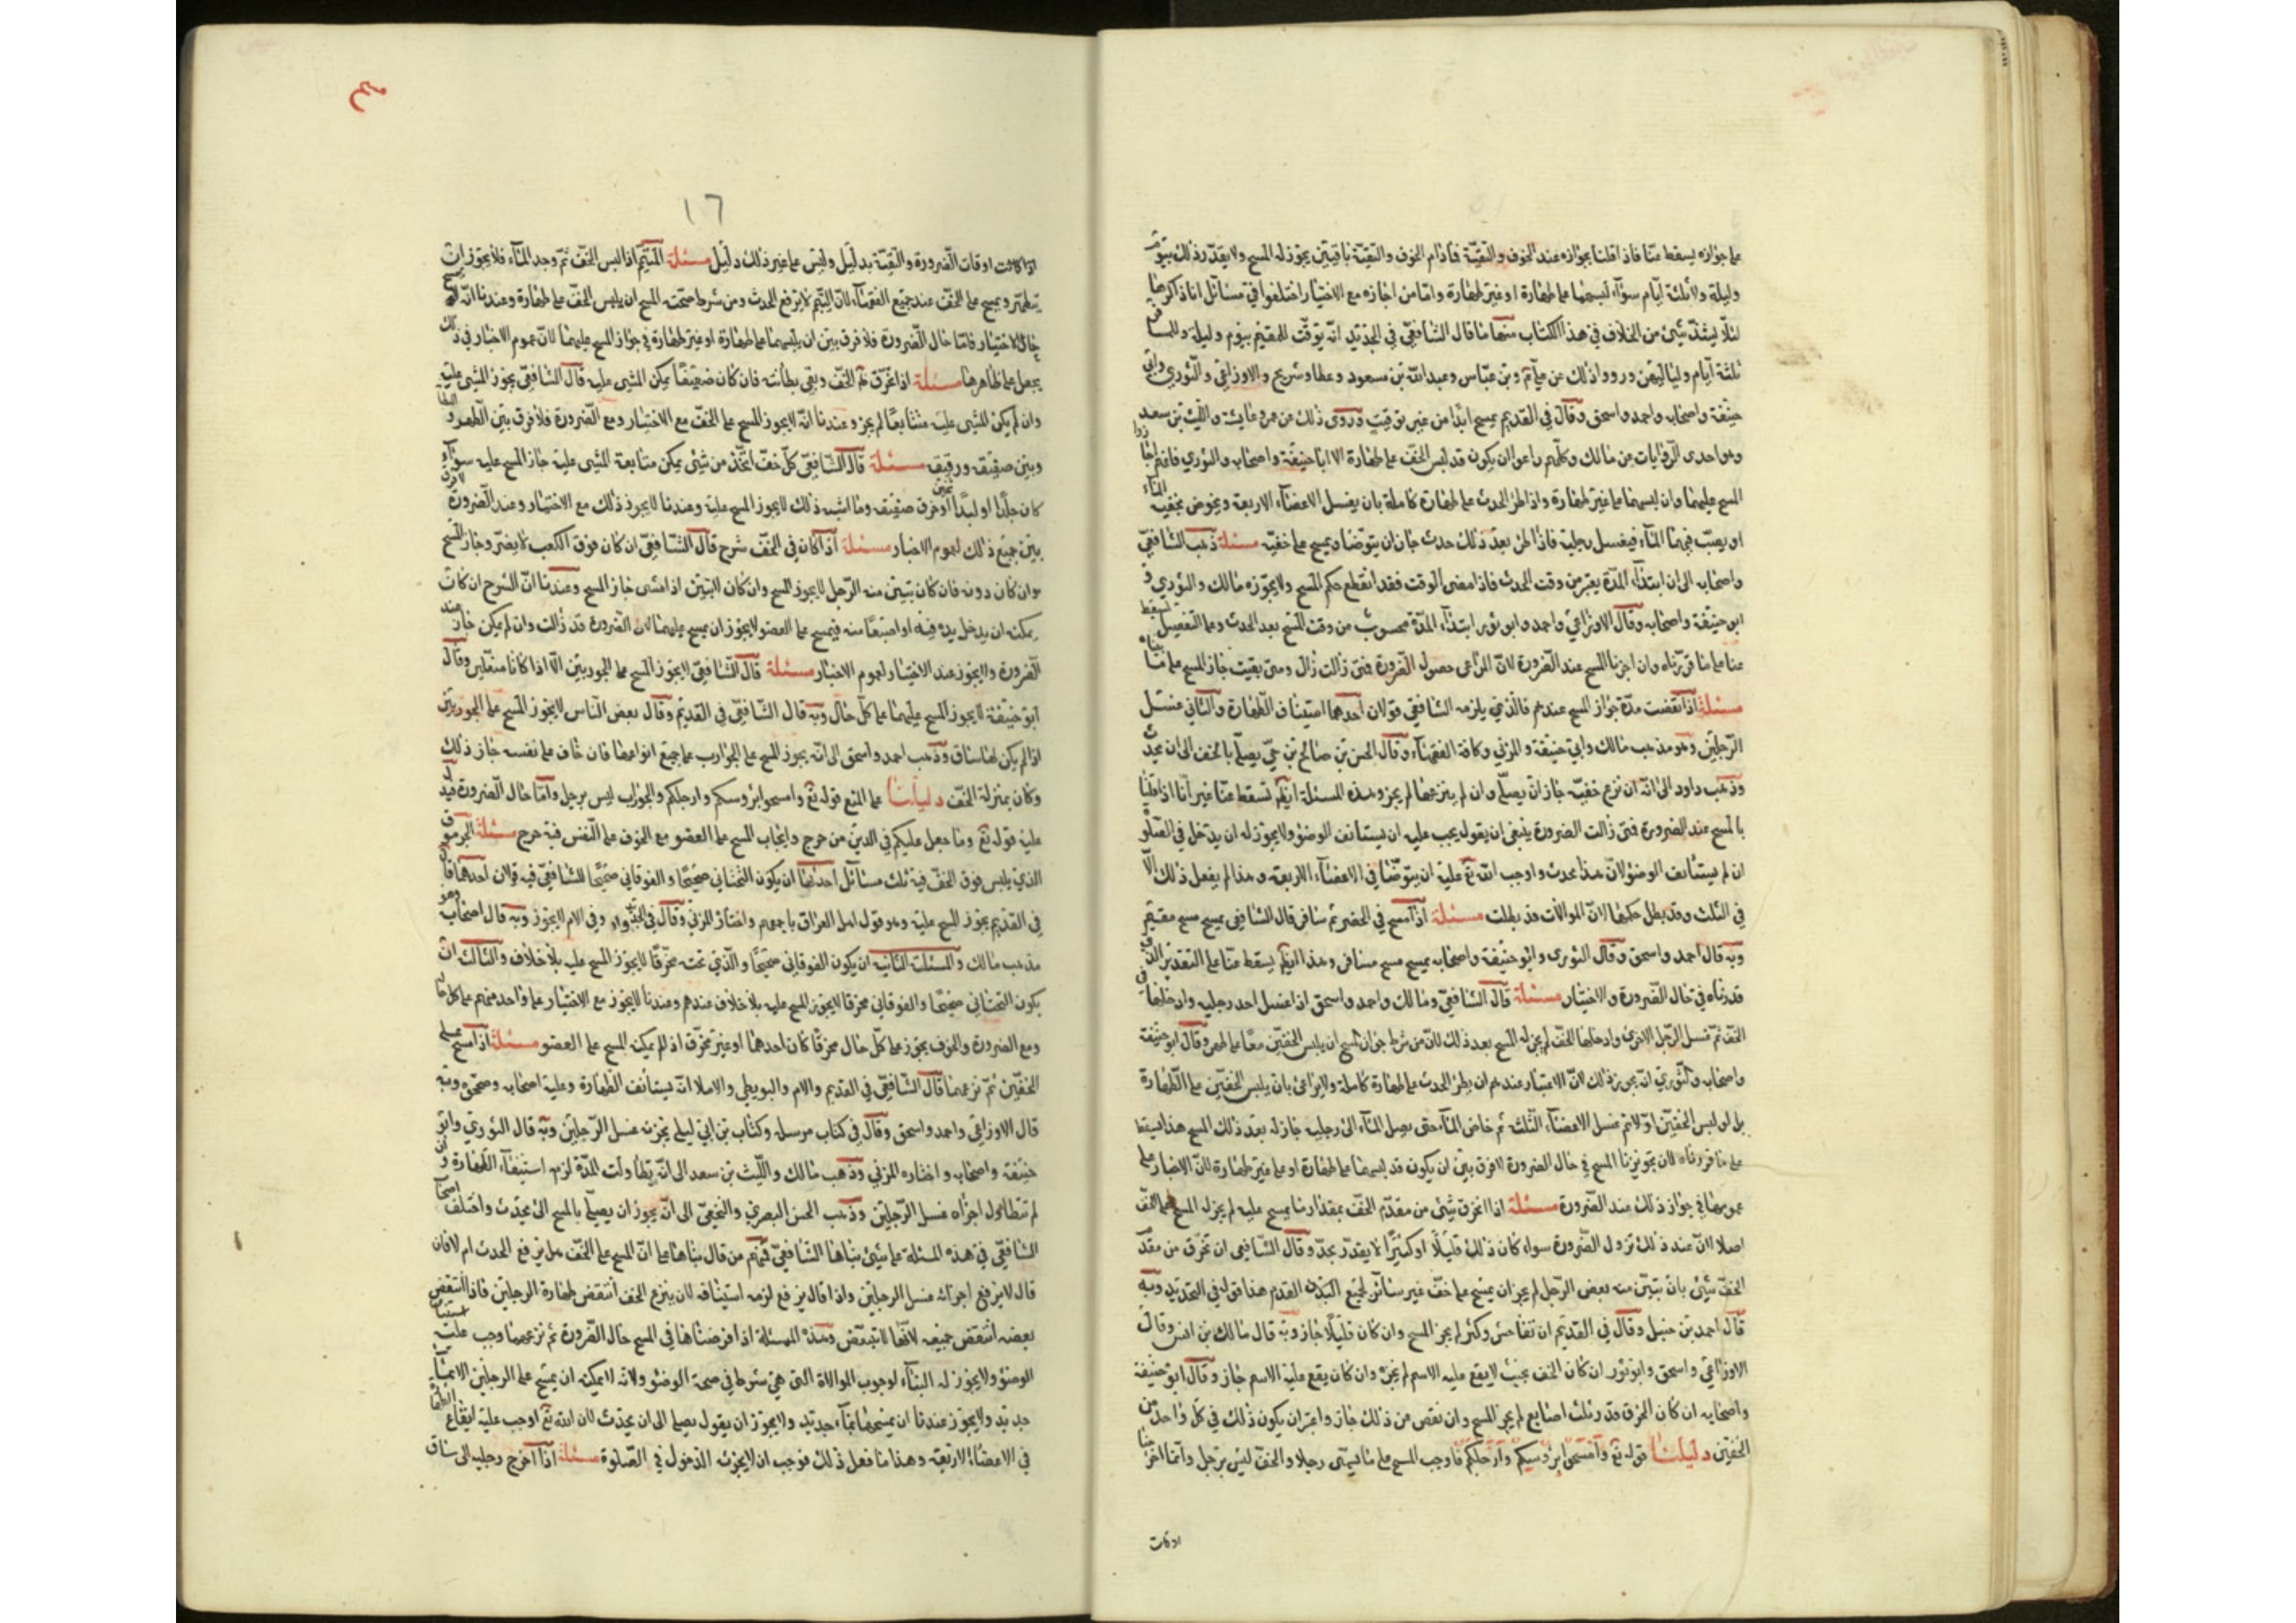 على جوازه يسقط عنا فاذا قلنا بجوازه عند الخوف والتقيّة فادام الخوف والتقيّة باقيتين يجوز له المسح ولا يتقدّر ذلك بيوم
وليلة ولا ثلثة ايّام سوآء لبسهما على طهارة او غير طهارة وامّا من اجازه مع الاختيار اختلفوا في مسائل انا ذاكرها
لئلّا يشذّ شيئ من الخلاف في هذا الكتاب منها ما قال الشافعيّ في الجديد انّه يوقّت للمقيم بيوم وليلة وللمسافر
ثلثة ايّام ولياليهنّ ورووا ذلك عن علي وبن عبّاس وعبدالله بن مسعود وعطا وشريح والاوزاعيّ والثوري وابي
حنيفة واصحابه واحمد واسحق وقال في القديم يمسح ابدًا من غير توقيت وروى ذلك عن عمر وعايشة والليث بن سعد
وهو احدى الرّوايات عن مالك وكلّهم راعوا ان يكون قد لبس الخفّ على طهارة الا ابا حنيفة واصحابه والثوري فانهم اجازوا
المسح عليهما وان لبسهما على غير طهارة واذا طرء الحدث على طهارة كاملة بان يغسل الاعضآء الاربعة ويخوض بخفيه المآء
او يصبّ فيهما المآء فيغسل رجليه فاذا طرء بعد ذلك حدث جاز ان يتوضا ويمسح على خفيّه مسئلة ذهب الشافعيّ
واصحابه الى ان ابتدآء المدّة يعتبر من وقت الحدث فاذا مضى الوقت فقد انقطع حكم المسح ولا يجوزه مالك والثوري و
ابو حنيفة واصحابه وقال الاوزاعي واحمد وابو ثور ابتدآء المدّة محسوب من وقت المسح بعد الحدث وهذا التفصيل يسقط
عنا على ما قرّرناه وان اجزنا المسح عند الضّرورة لانّ المراعى حصول الضّرورة فمتى زالت زال ومتى بقيت جاز المسح على ما بيّناه
مسئلة اذا انقضت مدّة جواز المسح عندهم فالذي يلزمه الشافعي قولان احدهما استيناف الطّهارة والثاني غسل
الرّجلين وهو مذهب مالك وابي حنيفة والمزني وكافة الفقهآء وقال الحسن بن صالح بن حيّ يصلّي بالخف الى ان يحدث
وذهب داود الى انّه ان نزع خفيّه جاز ان يصلّي وان لم ينزعهما لم يجز وهذه المسئلة ايضًا تسقط عنّا غير انّا اذا قلنا
بالمسح عند الضرورة فمتى زالت الضرورة ينبغي ان يقول يجب عليه ان يستأنف الوضوء ولا يجوز له ان يدخل في الصّلوة
ان لم يستأنف الوضوء لانّ هذا محدث واوجب الله تع عليه ان يتوضّأ في الاعضآء الاربعة وهذا لم يفعل ذلك الّا
في الثلث وقد بطل حكمها لانّ الموالات قد بطلت مسئلة اذا مسح في الحضر ثم سافر قال الشافعي يمسح مسح مقيم
وبه قال احمد واسحق وقال الثورى وابو حنيفة واصحابه يمسح مسح مسافر وهذا ايضًا يسقط عنّا على التقدير الذي
قدرناه في حال الضّرورة والاختيار مسئلة قال الشافعيّ ومالك واحمد واسحق اذا غسل احد رجليه وادخلها في
الخفّ ثمّ غسل الرّجل الاخرى وادخلها الخفّ لم يجز له المسح بعد ذلك لانّ من شرط جواز المسح ان يلبس الخفّين معًا على طهر وقال ابو حنيفة
واصحابه والثّوري انّه يجوز ذلك لانّ الاعتبار عندهم ان يطرء الحدث على طهارة كاملة ولا يراعى بان يلبس الخفّين على الطّهارة
بل لو لبس الخفّين اوّلا ثم غسل الاعضآء الثّلث ثم خاض المآء حتى يصل المآء الى رجليه جاز له بعد ذلك المسح هذا يسقط
على ما قررناه لان تجويزنا المسح في حال الضرورة لا فرق بين ان يكون قد لبسهما على طهارة او على غير طهارة لانّ الاخبار على
عمومها في جواز ذلك عند الضّرورة مسئلة اذا انخرق شيئ من مقدّم الخفّ بمقدار ما يمسح عليه لم يجز له المسح على الخفّ
اصلا الّا عند ذلك تزول الضّرورة سواء كان ذلك قليلًا او كثيرًا لا يقدّر بحدّ وقال الشافعى ان تخرّق من مقدّم
الخفّ شيئ بان تبيّن منه بعض الرّجل لم يجز ان يمسح على خفّ غير ساتر لجميع القدم هذا قوله في الجديد وبه
قال احمد بن حنبل وقال في القديم ان تفاحش وكثر لم يجز المسح وان كان قليلًا جاز وبه قال مالك بن انس وقال
الاوزاعيّ واسحق وابو ثور ان كان الخف بحيث لا يقع عليه الاسم لم يجز وان كان يقع عليه الاسم جاز وقال ابو حنيفة
واصحابه ان كان الخرق قدر ثلث اصابع لم يجز المسح وان نقص من ذلك جاز واعتبر ان يكون ذلك في كلّ واحد من
الخفّين دليلنا قوله تع وامسحوا برؤسكم وارجلكم فاوجب المسح على ما يسمّى رجلا والخفّ ليس برجل وانّما اخرجنا
اوقات
١٦
اذا كانت اوقات الضّرورة والتّقيّة بدليل وليس على غير ذلك دليل مسئلة المتيمّم اذا لبس الخفّ ثمّ وجد المآء فلا يجوز ان
يتطهّر ويمسح على الخفّ عند جميع الفقهآء لانّ التيمّم لا يرفع الحدث ومن شرط صحّت المسح ان يلبس الخفّ على طهارة وعندنا انّه لا يمسح
حال الاختيار فامّا حال الضّرورة فلا فرق بين ان يلبسهما على طهارة او غير طهارة في جواز المسح عليهما لانّ عموم الاخبار في ذلك
يحمل على ظاهرها مسئلة اذا تخرّق الخفّ وبقى بطانته فان كان ضعيفًا يمكن المشى عليه قال الشافعيّ يجوز المشى عليه
وان لم يكن المشى عليه متتابعًا لم يجز وعندنا انّه لا يجوز المسح على الخفّ مع الاختيار ومع الضّرورة فلا فرق بين الظهر و
وبين صفيق ورقيق مسئلة قال الشّافعيّ كلّ خفّ اتّخذ من شيئ يمكن متابعة المشى عليه جاز المسح عليه سوآء
كان جلدًا او لبدًا او خرق صفيق وما اشبه ذلك لا يجوز المسح عليه وعندنا لا يجوز ذلك مع الاختيار وعند الضّرورة لا فرق
بين جميع ذلك لعموم الاخبار مسئلة اذا كان في الخفّ شرج قال الشّافعيّ ان كان فوق الكعب لا يضرّ وجاز المسح
وان كان دونه فان كان تبيّن منه الرّجل لا يجوز المسح وان كان لا يتبيّن اذا مشى جاز المسح وعندنا انّ الشرج ان كان
يمكنه ان يدخل يده فيه او اصبعًا منه فيمسح على العضو لا يجوز ان يمسح عليهما لانّ الضّرورة قد زالت وان لم يمكن جاز عند
الضّرورة ولا يجوز عند الاختيار لعموم الاخبار مسئلة قال الشّافعيّ لا يجوز المسح على الجوربين الّا اذا كانا منعّلين وقال
ابو حنيفة لا يجوز المسح عليهما على كلّ حال وبه قال الشّافعيّ في القديم وقال بعض النّاس لا يجوز المسح على الجوربين
اذا لم يكن لها ساق وذهب احمد واسحق الى انّه يجوز المسح على الجوارب على جميع انواعها فان خاف على نفسه جاز ذلك
وكان بمنزلة الخفّ دليلنا على المنع قوله تع وامسحوا برؤسكم وارجلكم والجوراب ليس برجل وامّا حال الضّرورة فيدلّ
عليه قوله تع وما جعل عليكم في الدين من حرج وايجاب المسح على العضو مع الخوف على النّفس فيه حرج مسئلة الجرموق
الذي يلبس فوق الخفّ فيه ثلث مسائل احدها ان يكون التّحتاني صحيحًا والفوقاني صحيحًا للشافعيّ فيه قولان احدهما قال
في القديم يجوز المسح عليه وهو قول اهل العراق باجمعهم واختار المزني وقال في الجديد وفي الام لا يجوز وبه قال اصحابه وهو
مذهب مالك والمسئلة الثانية ان يكون الفوقاني صحيحًا والّذي تحته مخرّقًا لا يجوز المسح عليه بلا خلاف والثالث ان
يكون التحتاني صحيحًا والفوقاني مخرقا لا يجوز المسح عليه بلا خلاف عندهم وعندنا لا يجوز مع الاختيار على واحد منهم على كل حال
ومع الضرورة والخوف يجوز على كلّ حال مخرقًا كان احدهما او غير مخرّق اذا لم يمكنه المسح على العضو مسئلة اذا مسح على
الخفّين ثمّ نزعهما قال الشّافعيّ في القديم والام والبويطي والاملا انّه يستأنف الطّهارة وعليه اصحابه وصحّحوه وبه
قال الاوزاعيّ واحمد واسحق وقال في كتاب حرمله وكتاب بن ابي ليلى يجزئه غسل الرّجلين وبه قال الثوري وابو
حنيفة واصحابه واختاره المزني وذهب مالك واللّيث بن سعد الى انّه تطاولت المدّة لزمه استيناف الطّهارة وان
لم تتطاول اجزأه غسل الرّجلين وذهب الحسن البصريّ والنخعيّ الى انّه يجوز ان يصلّي بالمسح الى ان يحدث واختلف اصحاب
الشافعيّ في هذه المسئلة على شيئ بناها الشّافعيّ فمنهم من قال بناها على انّ المسح على الخفّ هل يرفع الحدث ام لا فان
قال لا يرفع اجزأه غسل الرجلين واذا قال يرفع لزمه استينافه لان ينزع الخف انتقض طهارة الرجلين فاذا انتقض
بعضه انتقض جميعه لانّها لا تتبعّض وهذه المسئلة اذا فرضناها في المسح حال الضّرورة ثم نزعهما وجب عليه استيناف
الوضوء ولا يجوز له البنآء لوجوب الموالاة التى هي شرط في صحة الوضوء ولانّه لا يمكنه ان يمسح على الرجلين الا بمآء
جديد ولا يجوز عندنا ان يمسحهما بمآء جديد ولا يجوز ان يقول يصلي الى ان يحدث لان الله تع اوجب عليه ايقاع الطهارة
في الاعضآء الاربعة وهذا ما فعل ذلك فوجب ان لا يجزئه الدّخول في الصّلوة مسئلة اذا اخرج رجليه الى ساق